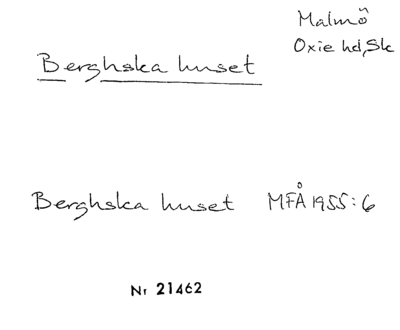 Malmö
Oxie hd, Sk
Berghska huset
Berghska huset MFÅ 1955:6
Nr 21462